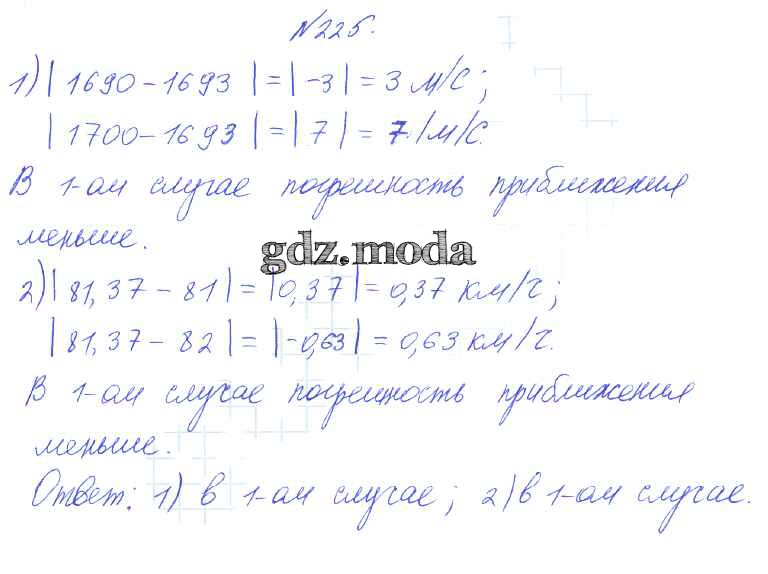 №225.
1) | 1690 – 1693 | = | -3 | = 3 м/с;
| 1700 – 1693 | = | 7 | = 7 м/с.
В 1-ом случае погрешность приближения
меньше.
gdz.moda
2) | 81,37 – 81 | = | 0,37 | = 0,37 км/ч;
| 81,37 – 82 | = | -0,63 | = 0,63 км/ч.
В 1-ом случае погрешность приближения
меньше.
Ответ: 1) в 1-ом случае; 2) в 1-ом случае.